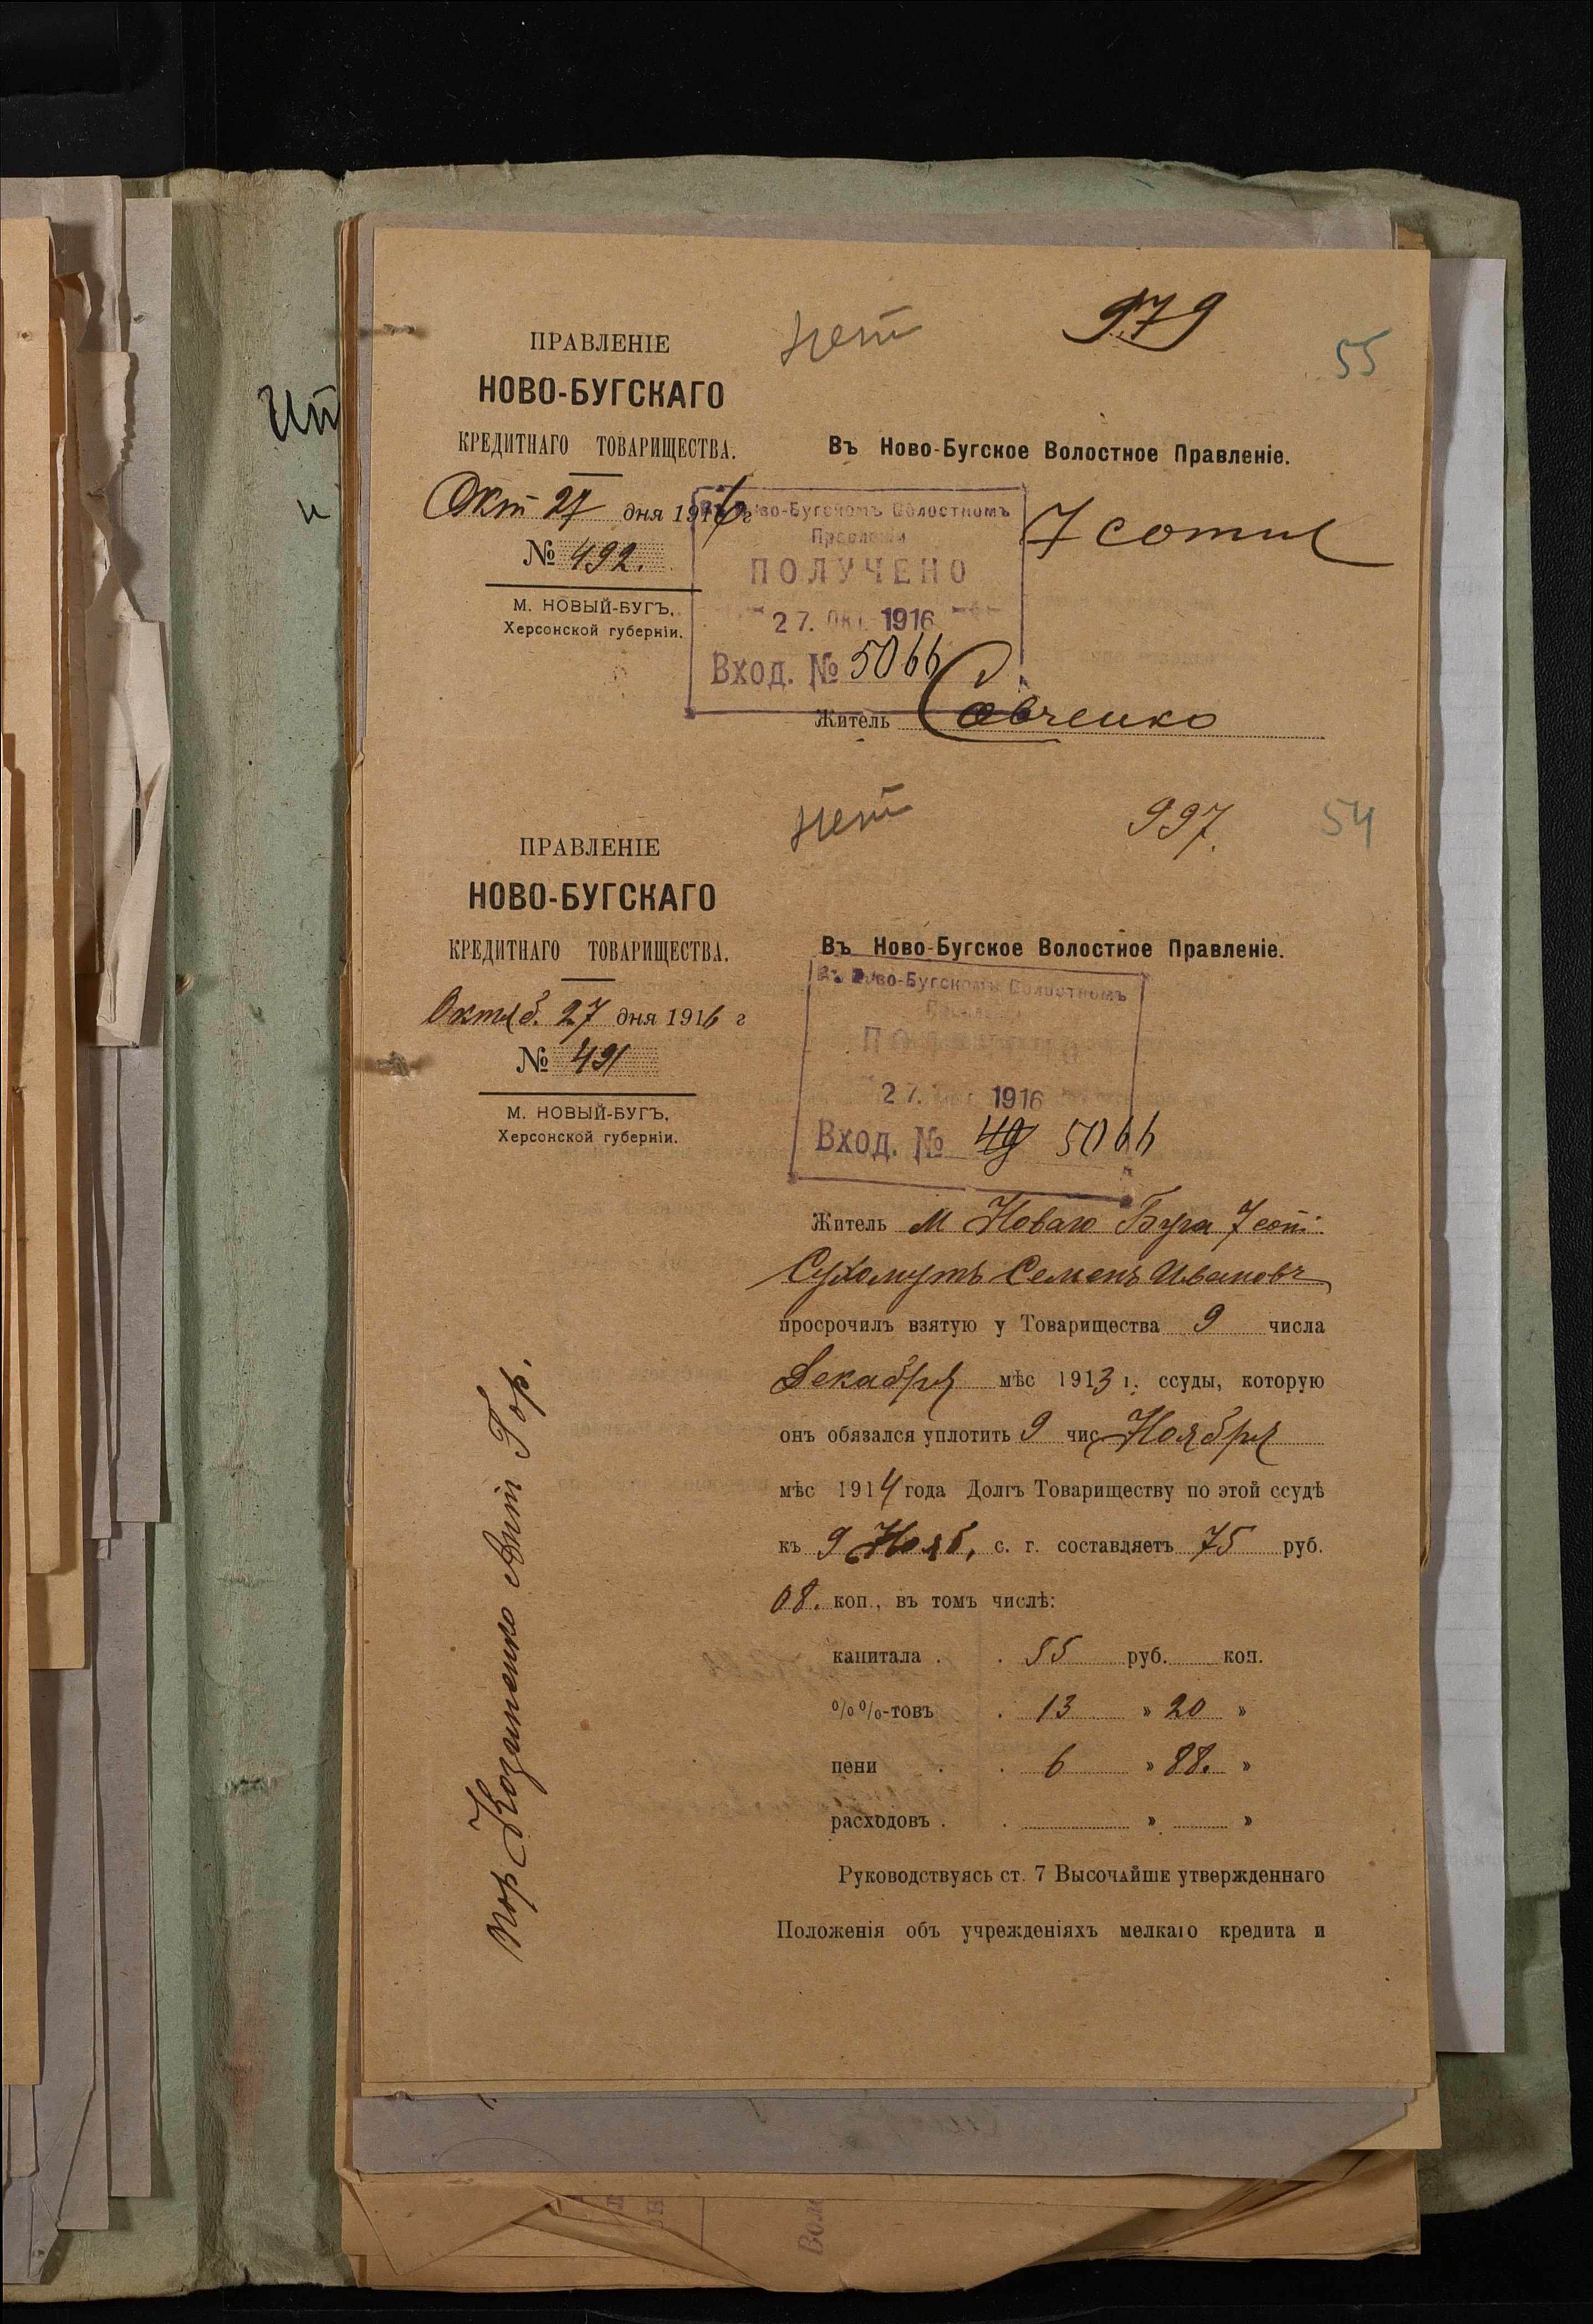 нет
979
55
ПРАВЛЕНІЕ
НОВО-БУГСКАГО
КРЕДИТНАГО ТОВАРИЩЕСТВА.
Въ Ново-Бугское Волостное Правленіе.
Окт 27 дня 1916 г
№ 492.
М. НОВЫЙ-БУГЪ,
Херсонской губерніи.
Въ Ново-Бугскомъ Волостномъ
Правленіи
ПОЛУЧЕНО
27. ОКТ. 1916
Вход. № 5066
7 сотни
Житель Савченко
нет
997.
54
ПРАВЛЕНІЕ
НОВО-БУГСКАГО
КРЕДИТНАГО ТОВАРИЩЕСТВА.
Въ Ново-Бугское Волостное Правленіе.
Октяб. 27 дня 1916 г
№ 491
М. НОВЫЙ-БУГЪ,
Херсонской губерніи.
Въ Ново-Бугскомъ Волостномъ
27. 1916
Вход. № 49 5066
Житель м Новаго Буга 7 сот:
Сухомутъ Семенъ Ивановъ
просрочилъ взятую у Товарищества 9 числа
Декабря мѣс 1913 г. ссуды, которую
онъ обязался уплотить 9 чис Ноября
мѣс 1914 года Долгъ Товариществу по этой ссудѣ
къ 9 Нояб, с. г. составляетъ 75 руб.
08. коп., въ томъ числѣ:
капитала . . 55 руб. коп.
%%-товъ . 13 » 20 »
пени . . 6 » 88. »
расходовъ . . » »
Руководствуясь ст. 7 Высочайше утвержденнаго
Положенія объ учрежденіяхъ мелкаго кредита и
пор Козаченко Ант Гор.